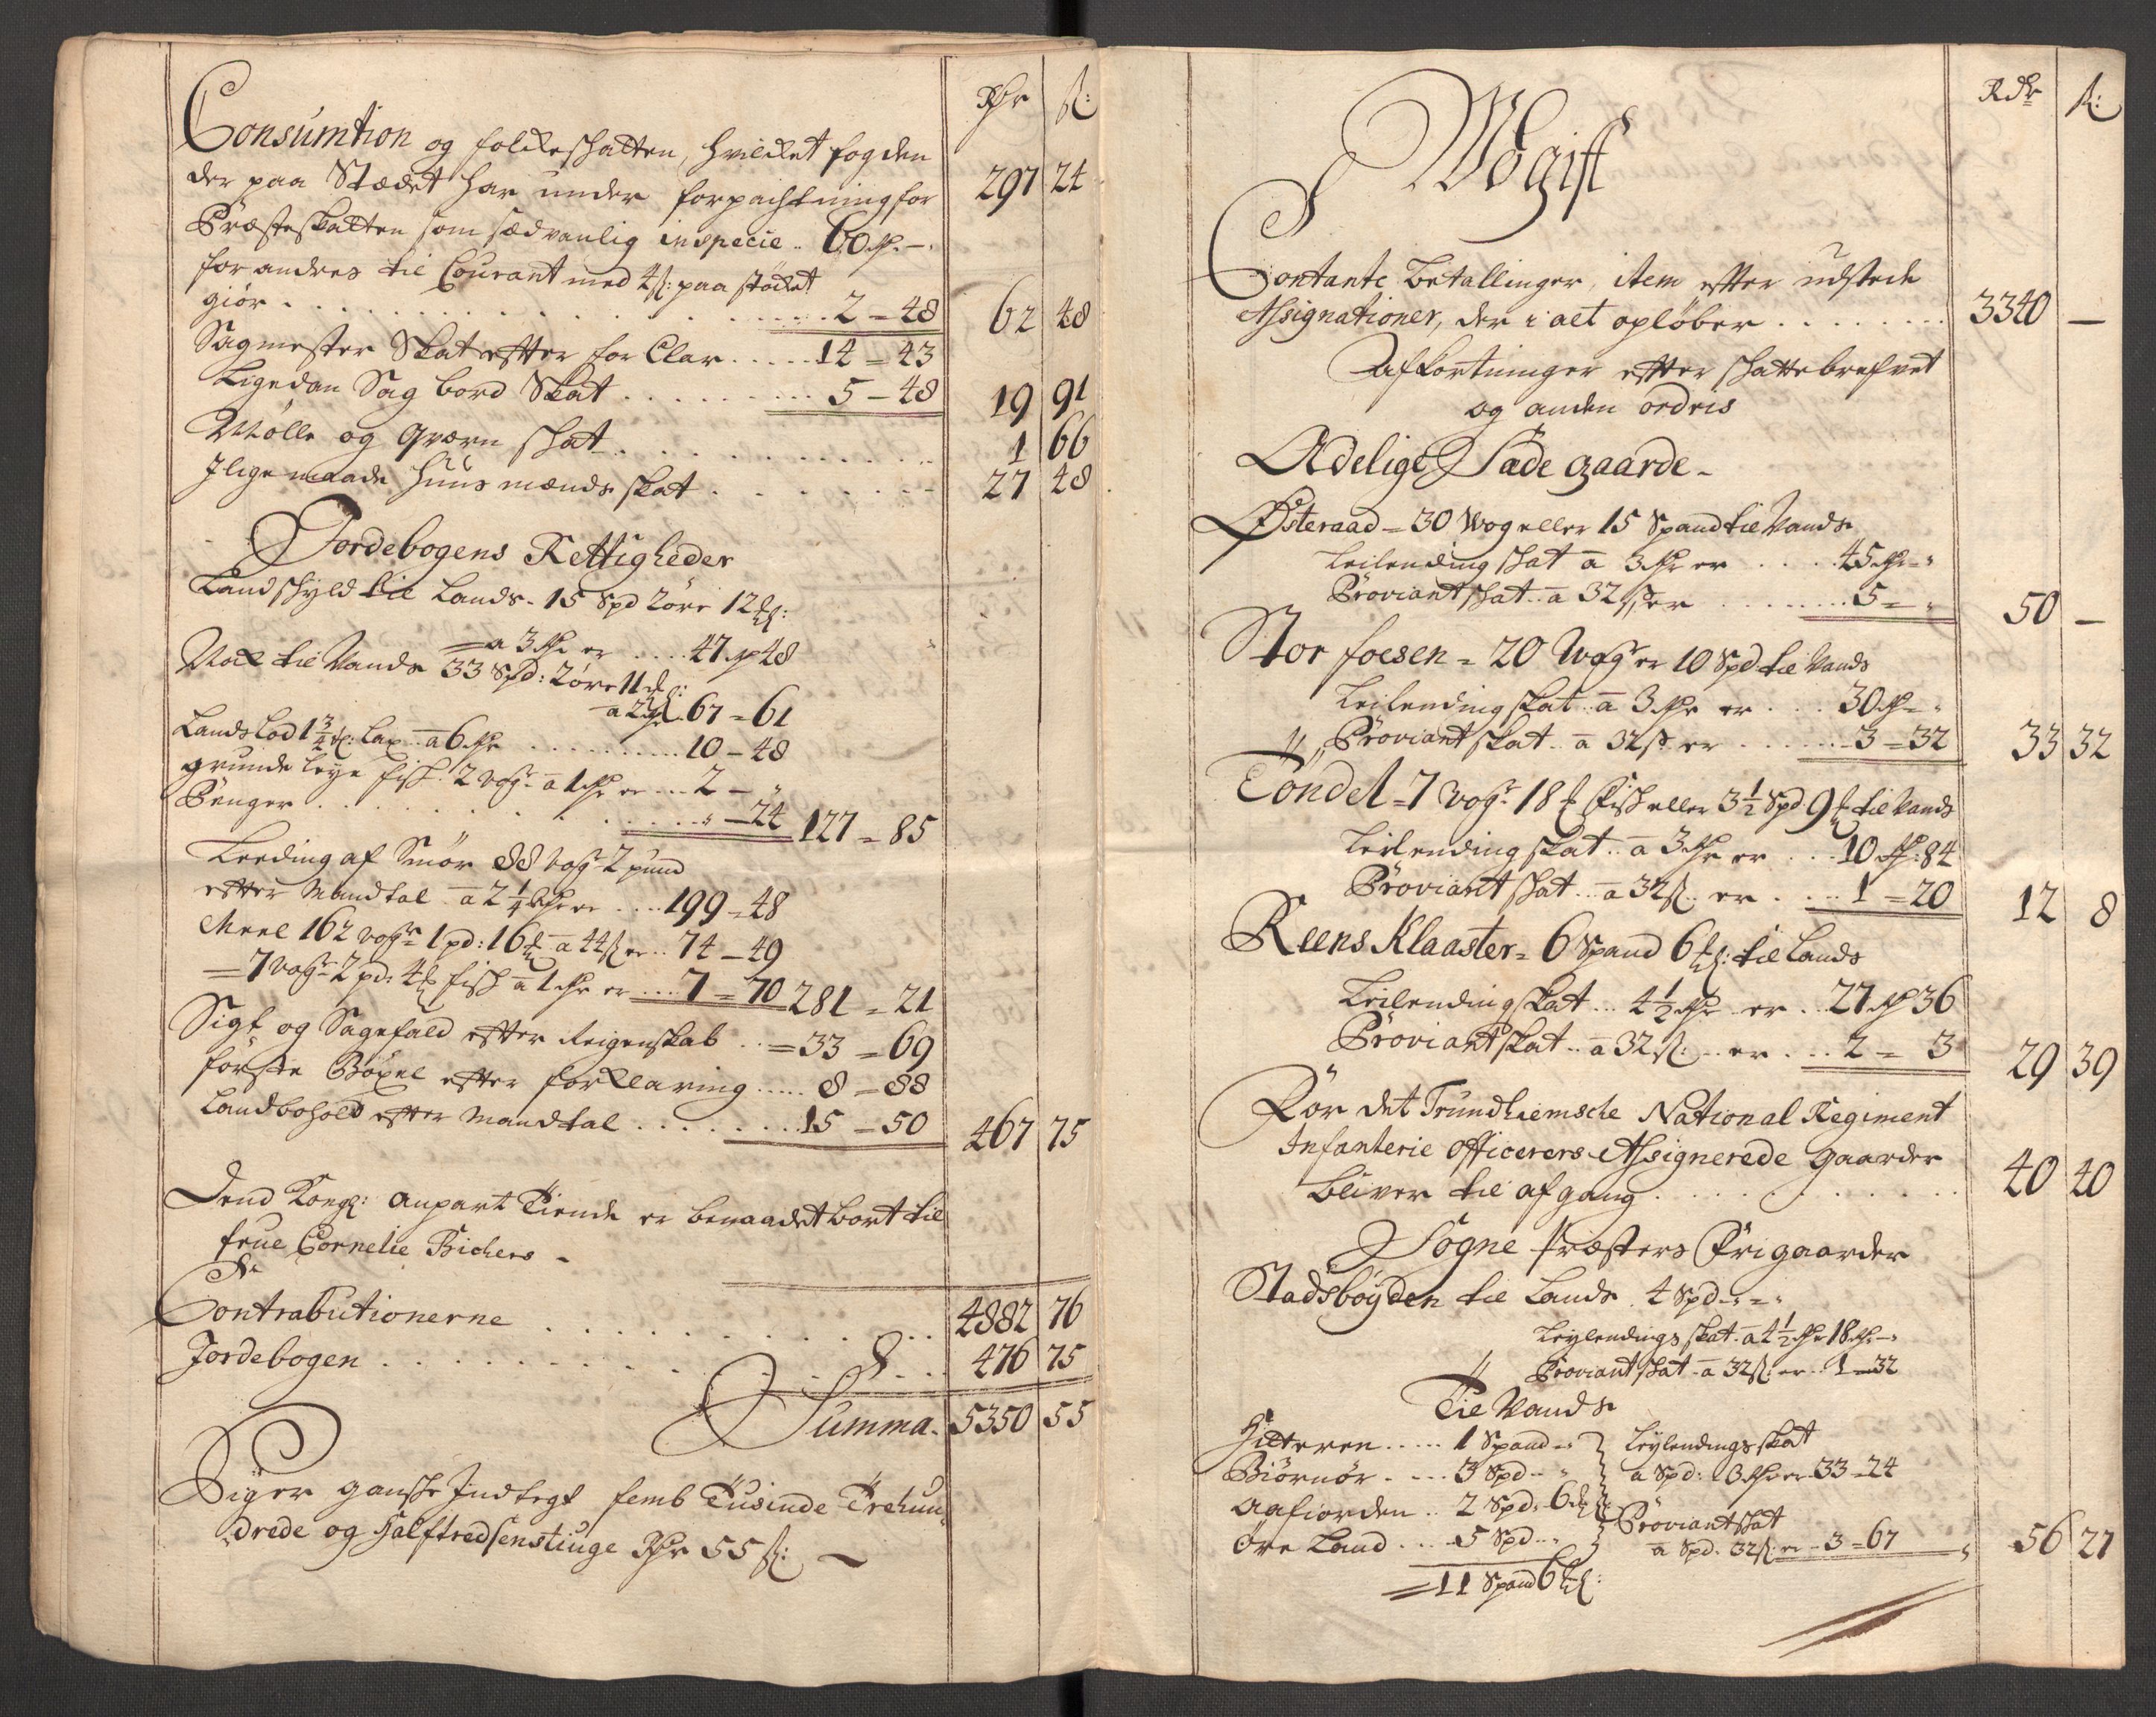 Rdr ß:
Consumtion og folkeskatten, hvilket fogden
der paa Stædet har under forpachtning for 297 24
Præsteskatten som sædvanlig in specie .. 60 Rdr –
forandres til Courant med 4 ß: paa støcket
giör . . . . 2 = 48 62 48
Sagmester Skat efter for Clar ..... 14 = 43
Ligedan Sag bord Skat ......... 5 – 48 19 91
Mølle og Qværn skat . . . . 1 66
Jligemaade Huusmænds skat . . . . 27 48
Jordebogens Rettigheder
Landskyld til Lands - 15 Spd 2 öre 12 ʒ:
= a 3 Rdr er .... 47 Rdr 48
Nok til Vands 33 Spd: 2 öre 11 ʒ:
a 2 Rdr. 67 = 61
Landslod 1 3/4 ʒ: Lax a 6 Rdr .......... 10 – 48
grundeleye fisk 2 vogr a 1 Rdr er ... 2 – "
Penger . . . . " – 24 127 = 85
Leeding af Smör 88 vogr 2 pund
efter Mandtal a 2 1/4 Rdr er .... 199 = 48
Meel 162 vogr 1 pd: 16 ʒ a 44 ß er .. 74 – 49
= 7 vogr 2 pd: 4 ʒ fisk a 1 Rdr er .... 7 = 70 281 = 21
Sigt og Sagefald efter Reigenskab .. = 33 = 69
förste Böxel efter forklaring ..... 8 = 88
Landbohold efter Mandtal ........ 15 – 50 467 75
Dend Kongl: anpart Tiende er benaadet bort til
frue Cornelie Bichers -
Contributionerne . . . . 4882 76
Jordebogen . . . . 476 75
Summa. 5350 55
Siger gandske Jndtegt femb Tusinde Trehun-
drede og Halftredsenstiuge Rdr 55 ß:
Rdr ß:
Udgift
Contante betallinger, item efter udstede
Assignationer, der i alt opløber . . . . 3340 –
Afkortninger efter skattebrefvet
og anden ordris
Adelige Sæde gaarde -
Østeraad = 30 Wog eller 15 Spand til Vands
Leilending skat a 3 Rdr er . . . 45 Rdr – "
Proviant skat .. a 32 ß er ........ 5 = " 50 –
Stor foesen = 20 Wogr er 10 Spd til Vands
Leilending skat .. a 3 Rdr er . . . 30 Rdr – "
Proviant skat .. a 32 ß er ...... 3 = 32 33 32
Töndel = 7 vogr 18 ʒ fisk eller 3 1/2 Spd 9 ʒ til Vands
Leilending skat .. a 3 Rdr er ... 10 Rdr: 84
Proviant skat .. a 32 ß .. er . ... 1 = 20 12 8
Reens Klaaster = 6 Spand 6 ʒ: til Lands
Leilending skat ... 4 1/2 Rdr er .. 27 Rdr 36
Proviant skat .. a 32 ß: .. er . ... 2 = 3 29 39
För det Trundhiemsche National Regiment
Infanterie officerers Assignerede gaarder
bliver til afgang . . . . 40 40
Sogne Præsters Frigaarder
Stadsbøyden til Lands . 4 Spd – " – "
Leylendings skat – a 4 1/2 Rdr 18 Rdr – "
Proviant skat – a 32 ß: er .. 1 – 32
Til Vands
Hitteren ..... 1 Spand – " Leylendings skat
Biörnör . ... 3 Spd – " a Spd: 3 Rdr er 33 – 24
Aafiorden .. 2 Spd: 6 ʒ Proviant skat
Öre Land .... 5 Spd – " a Spd. 32 ß: er – 3 = 67 56 27
= 11 Spand 6 ʒ: